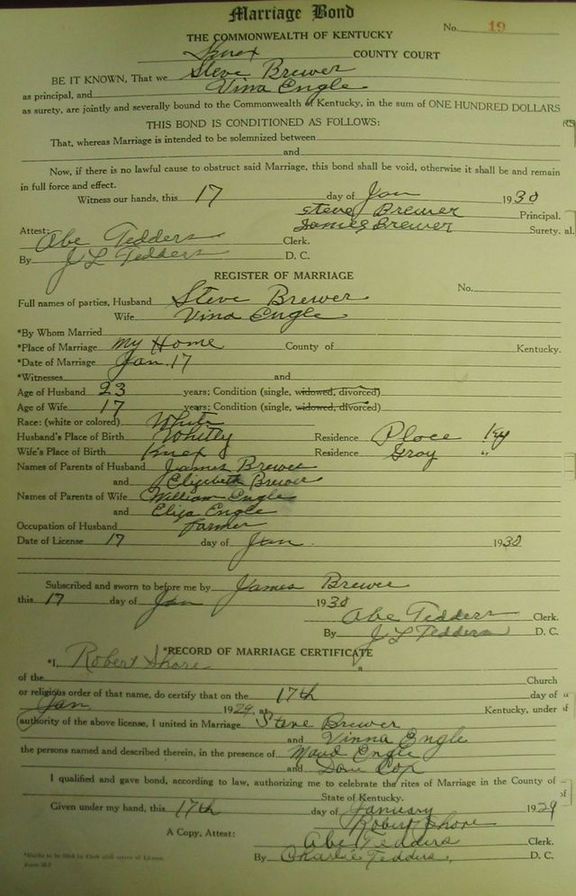 Marriage Bond
No. 19
THE COMMONWEALTH OF KENTUCKY
Knox COUNTY COURT
BE IT KNOWN, That we Steve Brewer
as principal, and Vina Engle
as surety, are jointly and severally bound to the Commonwealth of Kentucky, in the sum of ONE HUNDRED DOLLARS
THIS BOND IS CONDITIONED AS FOLLOWS:
That, whereas Marriage is intended to be solemnized between
and
Now, if there is no lawful cause to obstruct said Marriage, this bond shall be void, otherwise it shall be and remain
in full force and effect.
Witness our hands, this 17 day of Jan 1930
Steve Brewer Principal.
James Brewer Surety.
Attest: Abe Tedders Clerk.
By J L Tedders D. C.
REGISTER OF MARRIAGE
No.
Full names of parties, Husband Steve Brewer
Wife Vina Engle
*By Whom Married
*Place of Marriage My Home County of Kentucky.
*Date of Marriage Jan. 17
*Witnesses and
Age of Husband 23 years; Condition (single, widowed, divorced)
Age of Wife 17 years; Condition (single, widowed, divorced)
Race: (white or colored) White
Husband's Place of Birth Whitly Residence Place Ky
Wife's Place of Birth Knox Residence Gray "
Names of Parents of Husband James Brewer
and Elizabeth Brewer
Names of Parents of Wife William Engle
and Eliza Engle
Occupation of Husband Farmer
Date of License 17 day of Jan 1930
Subscribed and sworn to before me by James Brewer
this 17 day of Jan 1930
Abe Tedders Clerk.
By J L Tedders D. C.
*RECORD OF MARRIAGE CERTIFICATE
*I, Robert Shore a
of the Church
or religious order of that name, do certify that on the 17th day of
Jan 1929, at Kentucky, under
authority of the above license, I united in Marriage Steve Brewer
and Vinna Engle
the persons named and described therein, in the presence of Maud Engle
and Dove Cop
I qualified and gave bond, according to law, authorizing me to celebrate the rites of Marriage in the County of
State of Kentucky.
Given under my hand, this 17th day of January 1929
Robert Shore
A Copy, Attest: Abe Tedders Clerk.
By Charlie Tedders, D. C.